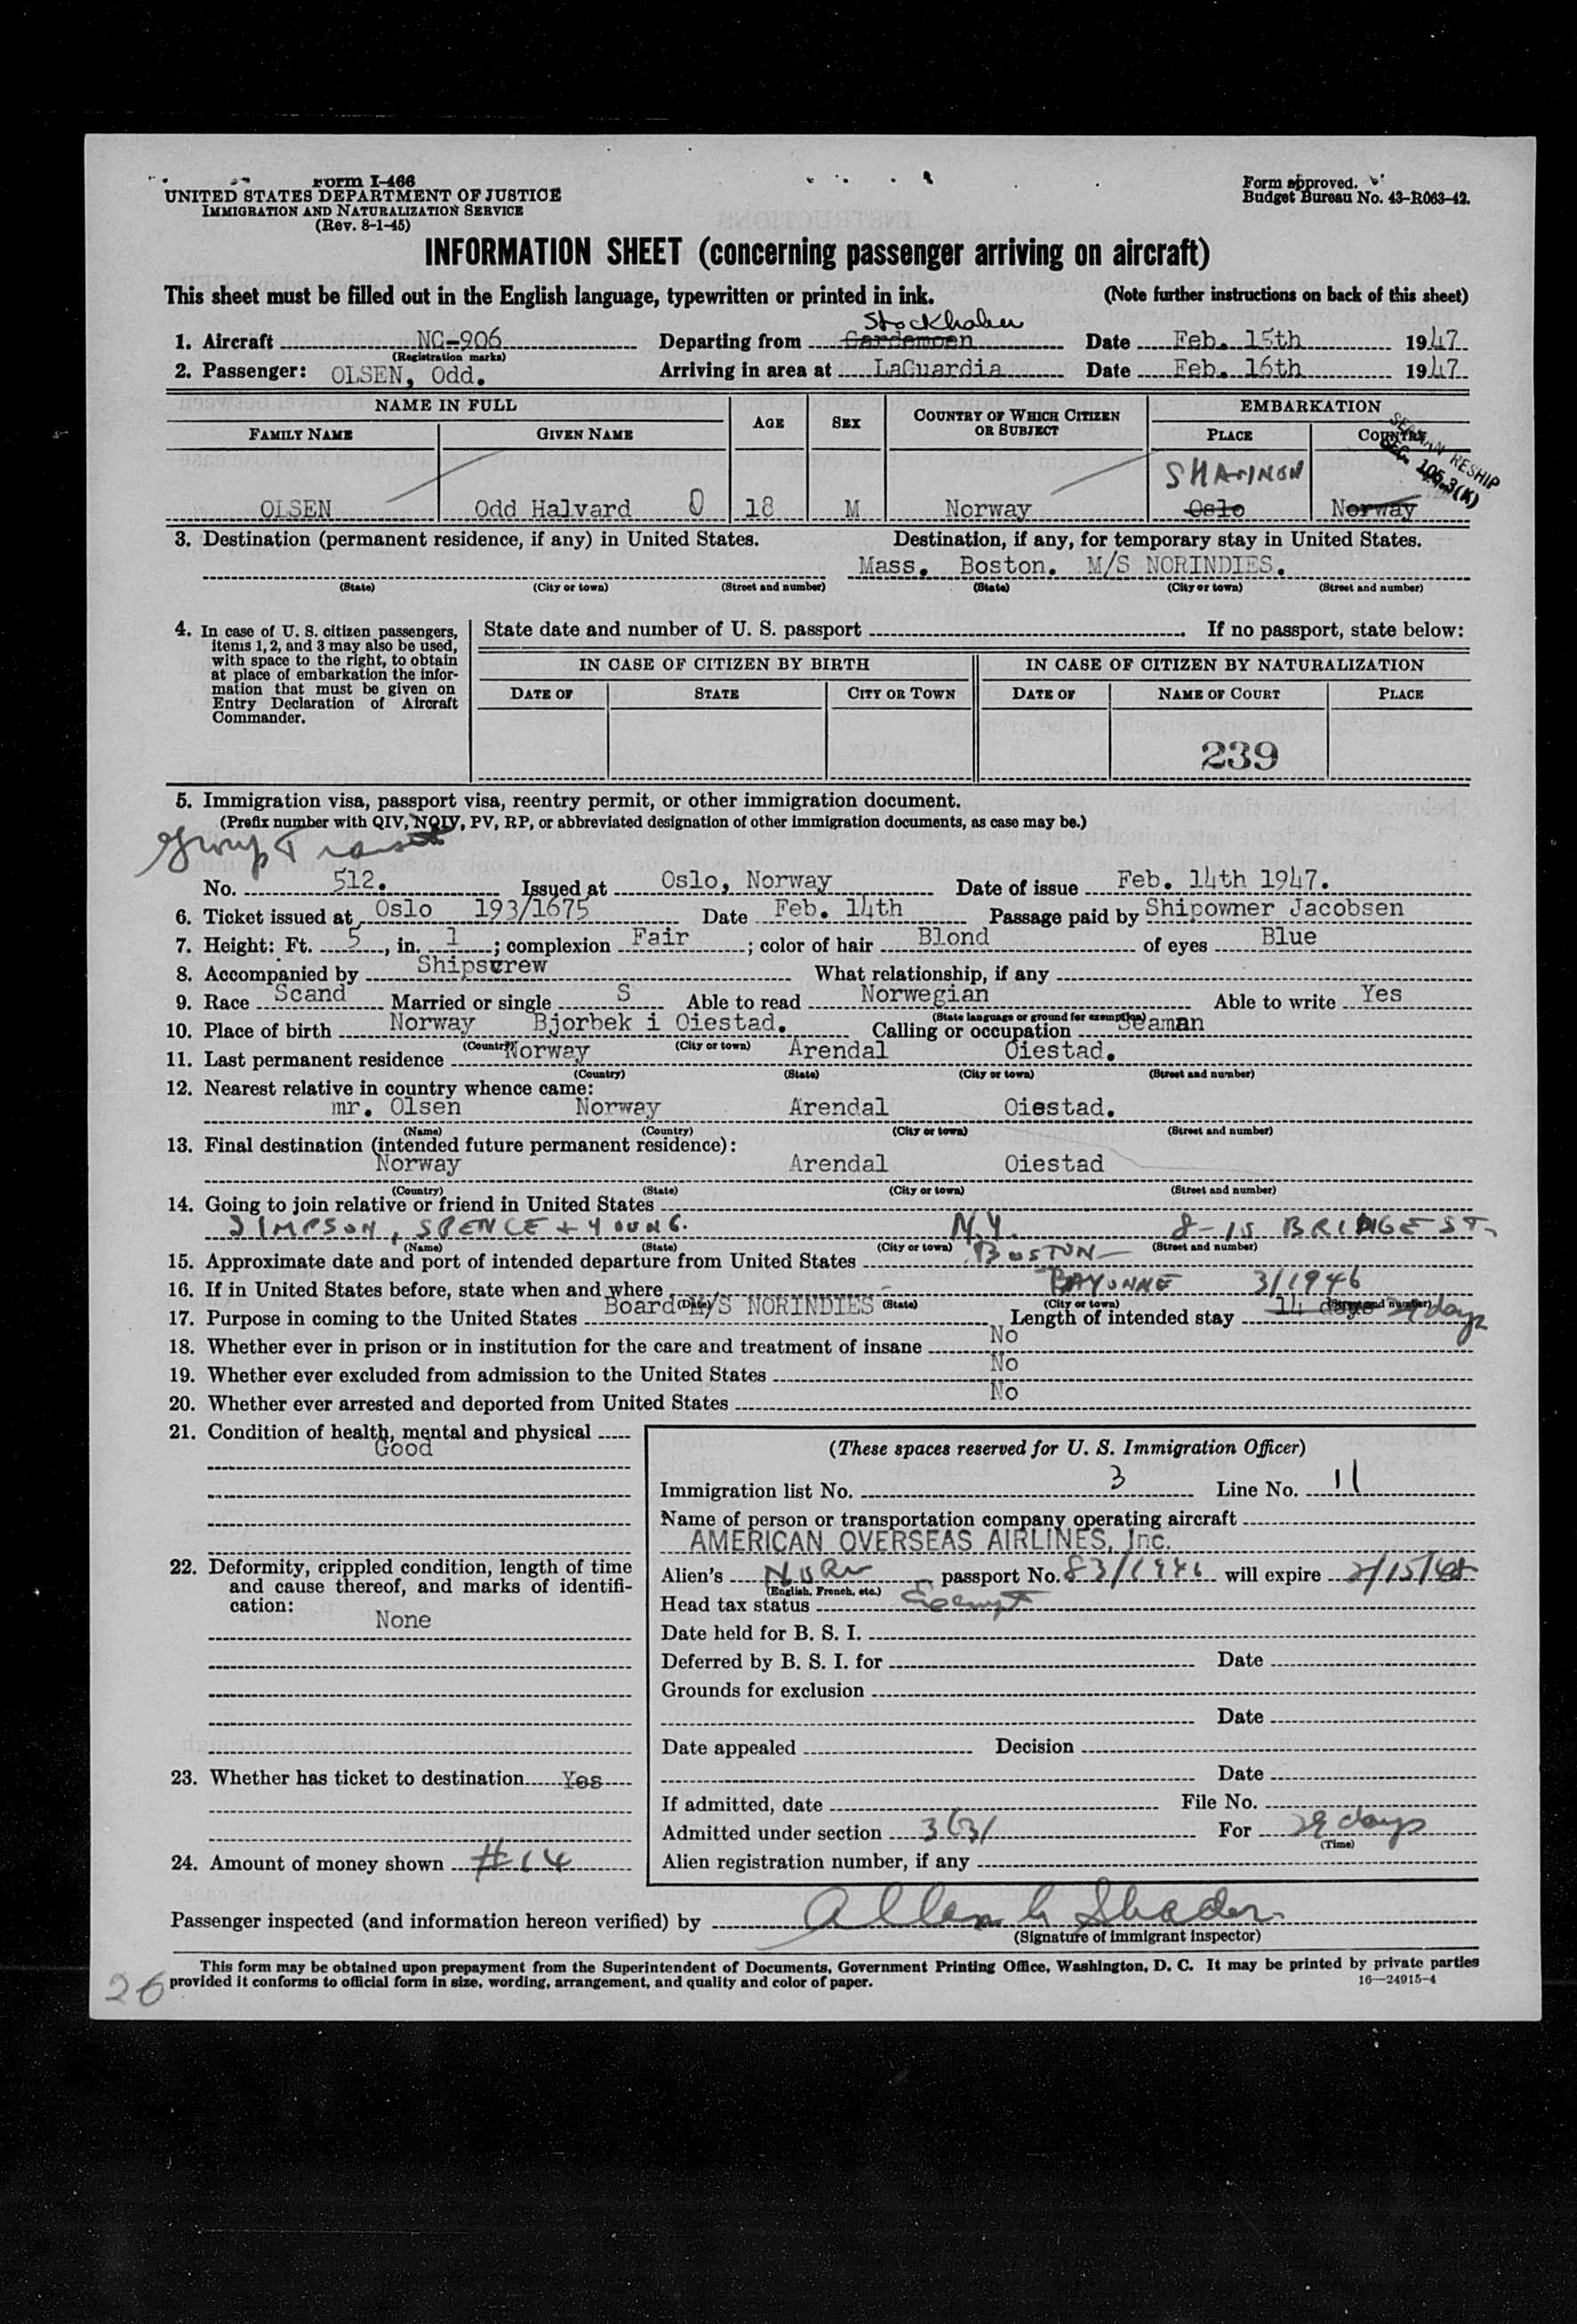 Form I-466
UNITED STATES DEPARTMENT OF JUSTICE
IMMIGRATION AND NATURALIZATION SERVICE
(Rev. 8-1-45)
Form approved.
Budget Bureau No. 43-R063-42.
INFORMATION SHEET (concerning passenger arriving on aircraft)
This sheet must be filled out in the English language, typewritten or printed in ink. (Note further instructions on back of this sheet)
Stockholm
1. Aircraft NC-906 Departing from Gardemoen Date Feb. 15th 1947
(Registration marks)
2. Passenger: OLSEN, Odd. Arriving in area at LaGuardia Date Feb. 16th 1947
NAME IN FULL AGE SEX COUNTRY OF WHICH CITIZEN OR SUBJECT EMBARKATION
FAMILY NAME GIVEN NAME PLACE COUNTRY
SEAMAN RESHIP
SEC. 105.3(K)
SHANNON
OLSEN Odd Halvard 0 18 M Norway Oslo Norway
3. Destination (permanent residence, if any) in United States. Destination, if any, for temporary stay in United States.
Mass. Boston. M/S NORINDIES.
(State) (City or town) (Street and number) (State) (City or town) (Street and number)
4. In case of U. S. citizen passengers, items 1, 2, and 3 may also be used, with space to the right, to obtain at place of embarkation the information that must be given on Entry Declaration of Aircraft Commander.
State date and number of U. S. passport If no passport, state below:
IN CASE OF CITIZEN BY BIRTH IN CASE OF CITIZEN BY NATURALIZATION
DATE OF STATE CITY OR TOWN DATE OF NAME OF COURT PLACE
239
5. Immigration visa, passport visa, reentry permit, or other immigration document.
(Prefix number with QIV, NQIV, PV, RP, or abbreviated designation of other immigration documents, as case may be.)
Group Transit
No. 512. Issued at Oslo, Norway Date of issue Feb. 14th 1947.
6. Ticket issued at Oslo 193/1675 Date Feb. 14th Passage paid by Shipowner Jacobsen
7. Height: Ft. 5, in. 1; complexion Fair; color of hair Blond of eyes Blue
8. Accompanied by Shipscrew What relationship, if any
9. Race Scand Married or single S Able to read Norwegian Able to write Yes
(State language or ground for exemption)
10. Place of birth Norway Bjorbek i Oiestad. Calling or occupation Seaman
(Country) (City or town)
11. Last permanent residence Norway Arendal Oiestad.
(Country) (State) (City or town) (Street and number)
12. Nearest relative in country whence came:
mr. Olsen Norway Arendal Oiestad.
(Name) (Country) (City or town) (Street and number)
13. Final destination (intended future permanent residence):
Norway Arendal Oiestad
(Country) (State) (City or town) (Street and number)
14. Going to join relative or friend in United States
SIMPSON, SPENCE + YOUNG. N.Y. 8-10 BRIDGE ST.
(Name) (State) (City or town) (Street and number)
15. Approximate date and port of intended departure from United States BOSTON
16. If in United States before, state when and where BAYONNE 3/1946
(Date) (State) (City or town) (Street and number)
17. Purpose in coming to the United States Board M/S NORINDIES Length of intended stay 14 days 29 days
18. Whether ever in prison or in institution for the care and treatment of insane No
19. Whether ever excluded from admission to the United States No
20. Whether ever arrested and deported from United States No
21. Condition of health, mental and physical
Good
22. Deformity, crippled condition, length of time and cause thereof, and marks of identification:
None
23. Whether has ticket to destination Yes
24. Amount of money shown #14
(These spaces reserved for U. S. Immigration Officer)
Immigration list No. 3 Line No. 11
Name of person or transportation company operating aircraft
AMERICAN OVERSEAS AIRLINES, Inc.
Alien's Norw passport No. 83/1946 will expire 2/15/48
(English, French, etc.)
Head tax status Exempt
Date held for B. S. I.
Deferred by B. S. I. for Date
Grounds for exclusion
Date
Date appealed Decision
Date
If admitted, date File No.
Admitted under section 3(3) For 29 days
(Time)
Alien registration number, if any
Passenger inspected (and information hereon verified) by Allen G Shader
(Signature of immigrant inspector)
This form may be obtained upon prepayment from the Superintendent of Documents, Government Printing Office, Washington, D. C. It may be printed by private parties
provided it conforms to official form in size, wording, arrangement, and quality and color of paper. 16—24915-4
26